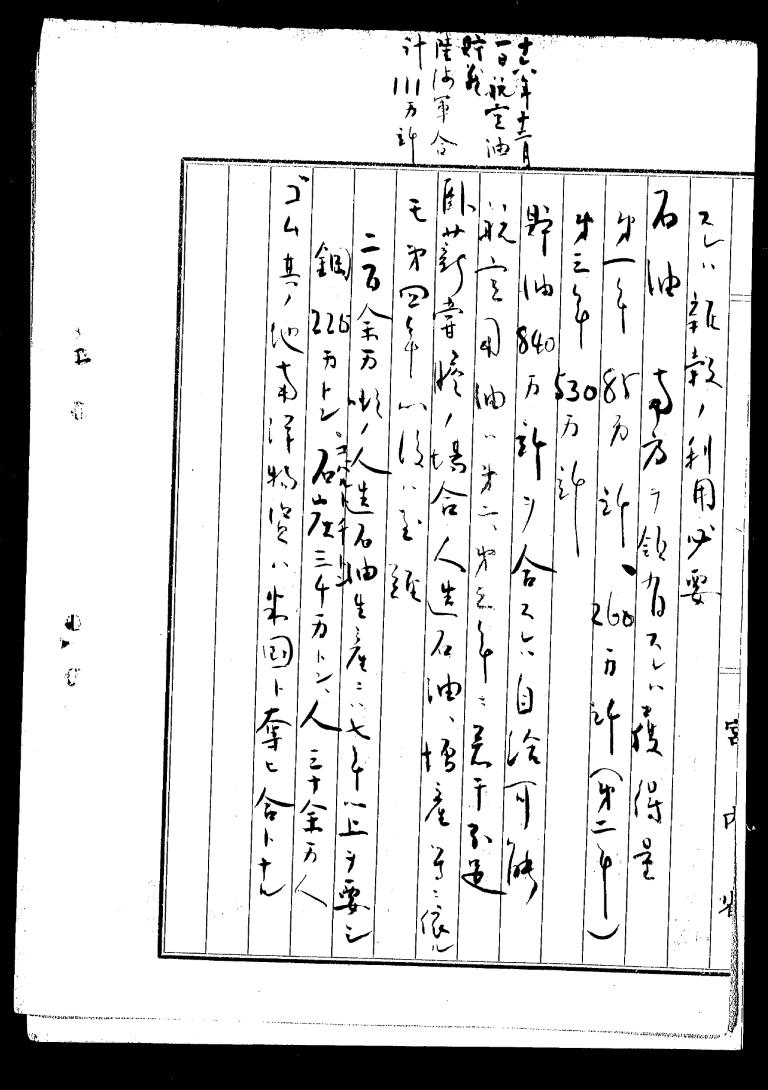 十六年十二月
一日航空油
貯蔵
陸海軍合
計111万訐
スレハ雑穀ノ利用必要
石油 南方ヲ領有スレハ獲得量
第一年 85万訐、260万訐(第二年)
第三年 530万訐
貯油840万訐ヲ合スレハ自給可能
航空用油ハ第二、第三年ニ若干不足
臥薪嘗胆ノ場合人造石油、増産等ニ依ル
モ第四年以後ハ至難
二百余万噸ノ人造石油生産ニハ七年以上ヲ要シ
鋼225万トン、コバルト千トン
石炭三千万トン、人三十余万人
ゴム其ノ他南洋物資ハ米国ト奪ヒ合トナル
宮内省